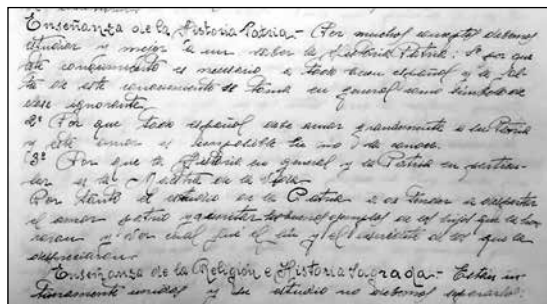 Enseñanza de la Historia Patria.- Por muchos conceptos debemos
estudiar y mejor a un saber la Historia Patria: 1º por que
este conocimiento es necesario a todo buen español y la fal-
ta de este conocimiento se toma en general como símbolo de
ser ignorante.
2º Por que todo español debe amar grandemente a su Patria
y este amor es imposible si no la conoce.
3º Por que la Historia en general y la Patria en particu-
lar es la Maestra de la Vida
Por tanto el estudio de la Patria a de tender a despertar
el amor patrio y a imitar los buenos ejemplos de los hijos que la hon-
raron y por cual fué el fin y el de los que la
despreciaron.
Enseñanza de la Religión e Historia Sagrada.- Están ín-
timamente unidas y su estudio no debemos separarlo: